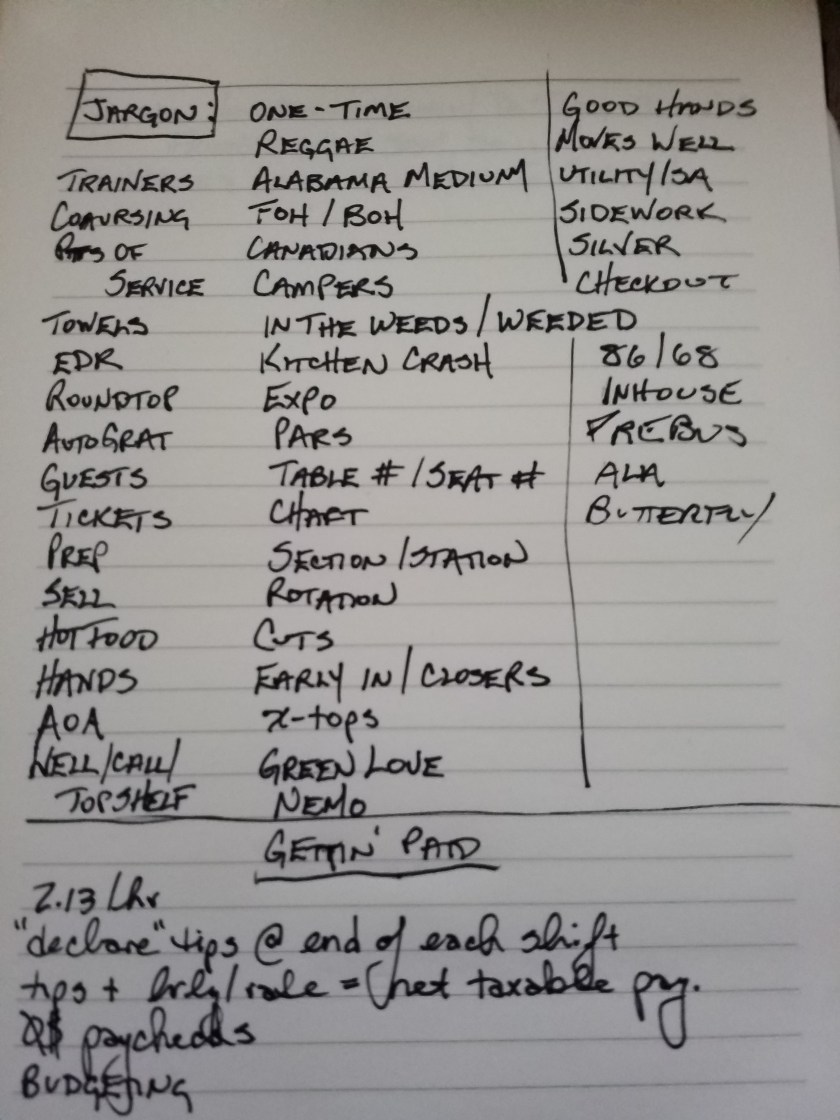 JARGON:
ONE-TIME
REGGAE
TRAINERS
ALABAMA MEDIUM
COAURSING
FOH / BOH
OF
CANADIANS
SERVICE
CAMPERS
TOWELS
IN THE WEEDS / WEEDED
EDR
KITCHEN CRASH
ROUNDTOP
EXPO
AUTOGRAT
PARS
GUESTS
TABLE # / SEAT #
TICKETS
CHART
PREP
SECTION / STATION
SELL
ROTATION
HOT FOOD
CUTS
HANDS
EARLY IN / CLOSERS
AOA
X-TOPS
WELL/CALL/
GREEN LOVE
TOPSHELF
NEMO
GOOD HANDS
MOVES WELL
UTILITY/SA
SIDEWORK
SILVER
CHECKOUT
86/68
INHOUSE
PREBUS
ALA
BUTTERFLY
GETTIN' PAID
2.13 / hr
"declare" tips @ end of each shift
tips + hrly/rate = net taxable pay.
paychecks
BUDGETING